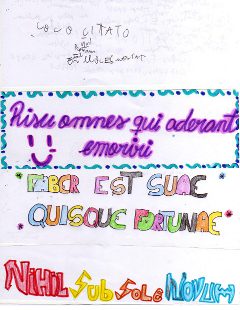 LOCO CITATO
Risu omnes qui aderant
emoriri
FABER EST SUAE
QUISQUE FORTUNAE
NIHIL SUB SOLE NOVUM